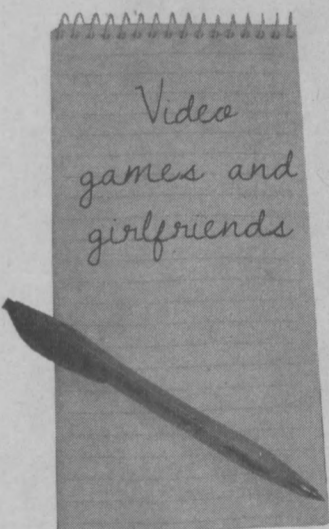 Video
games and
girlfriends